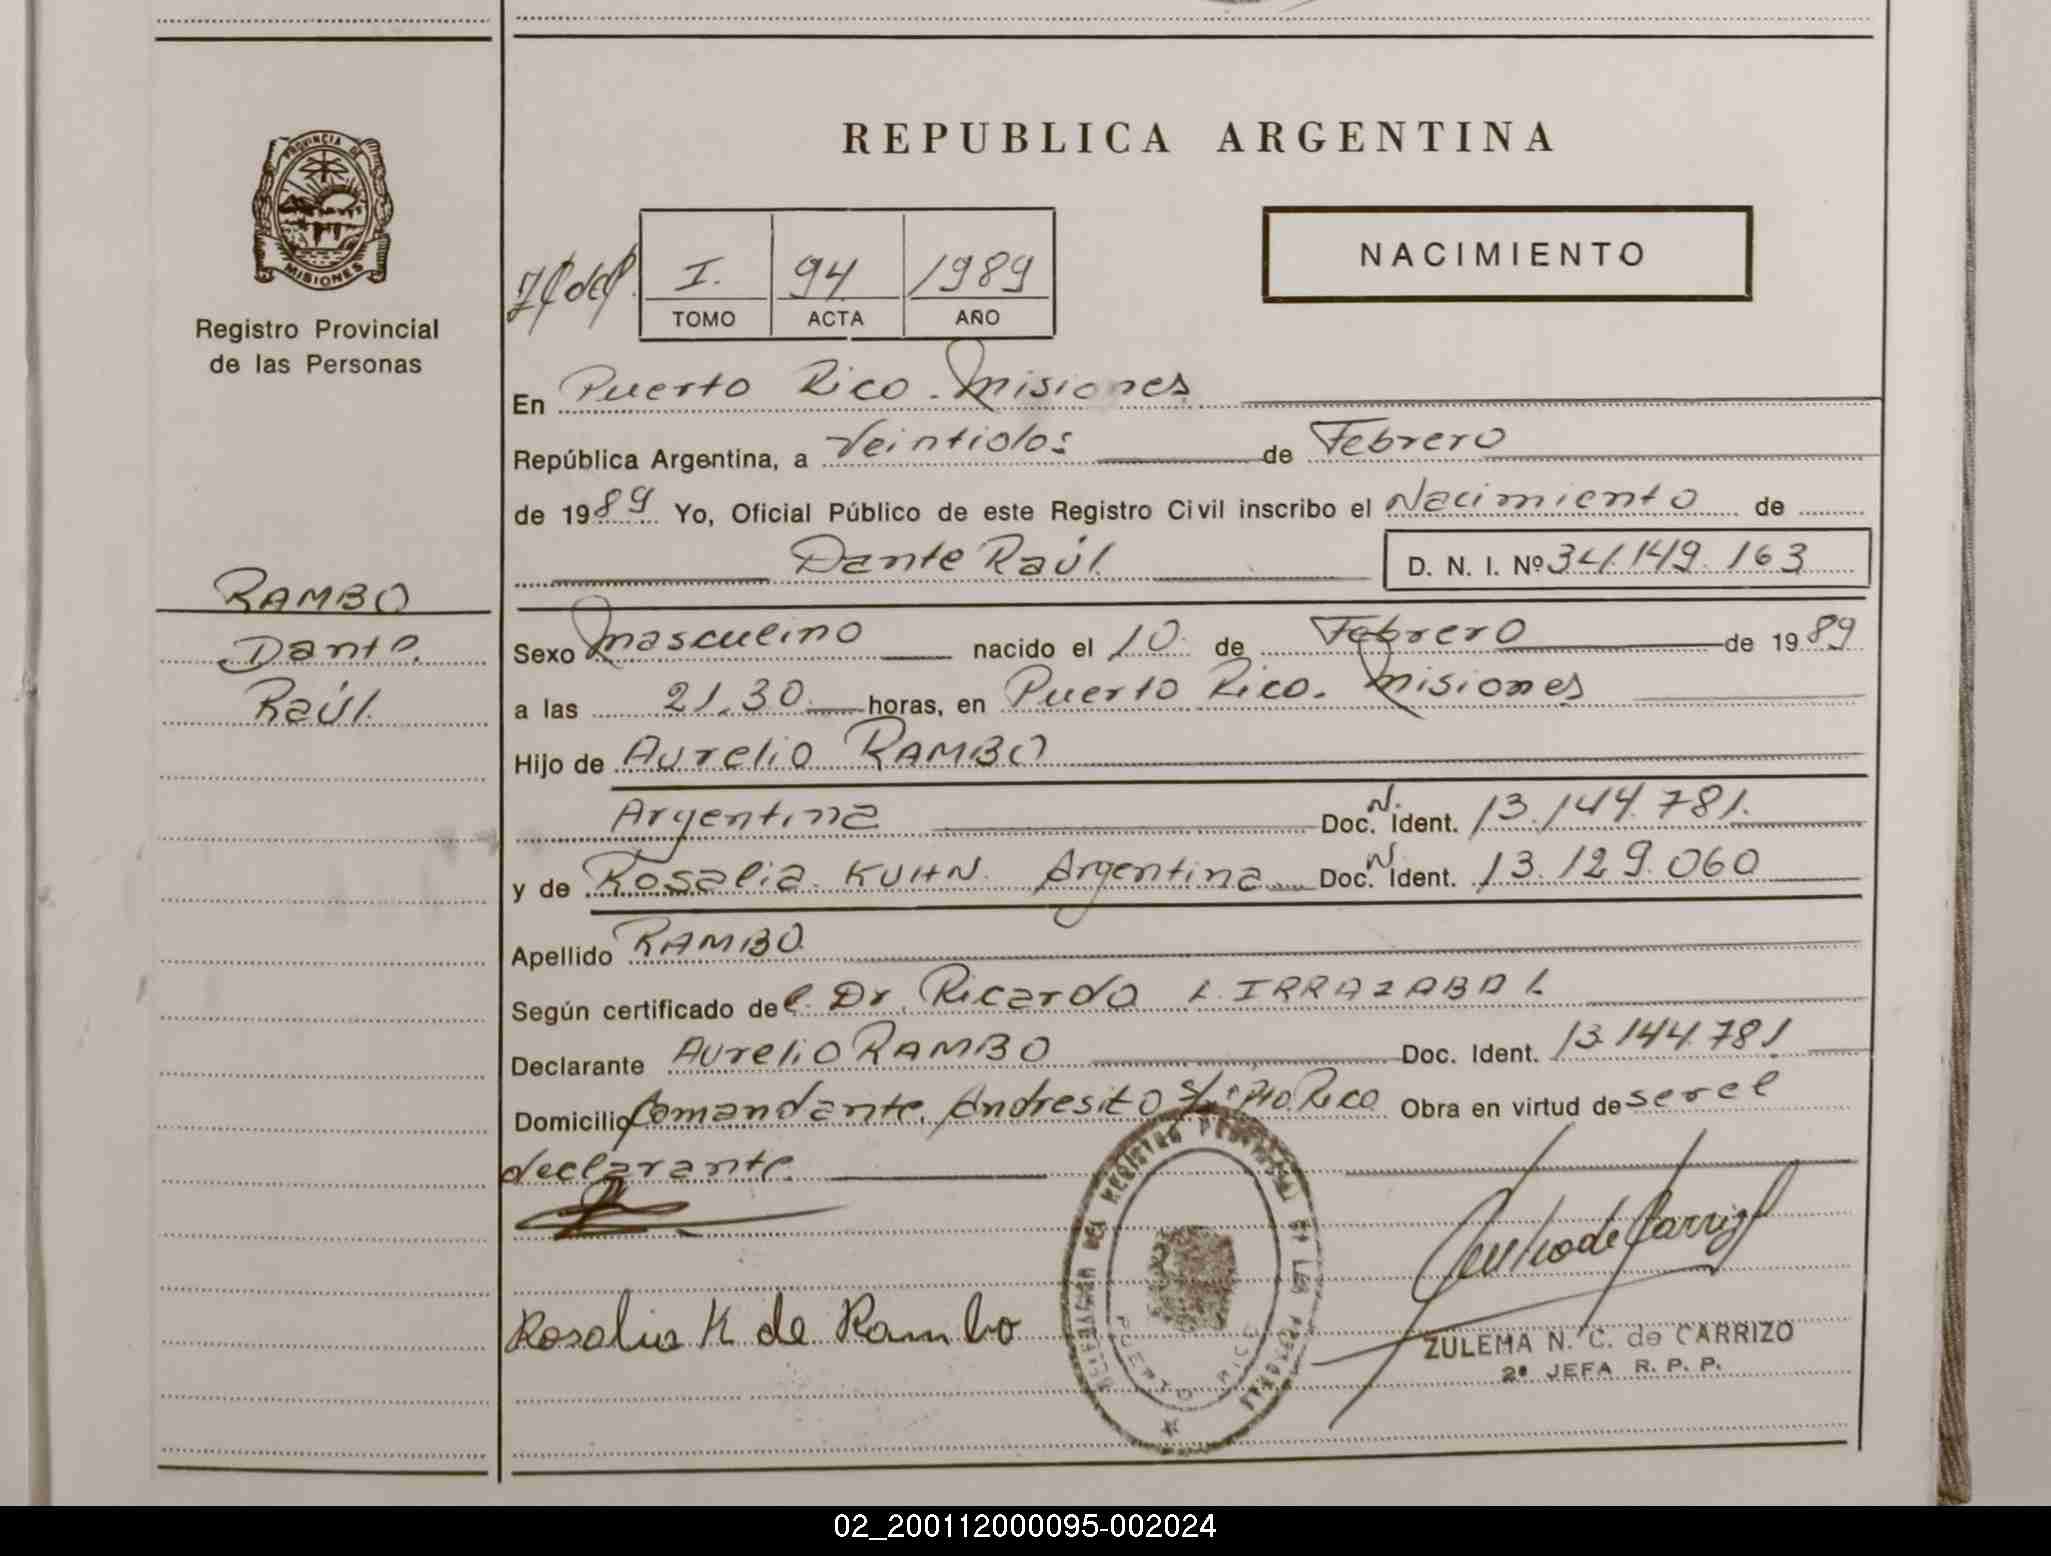 REPUBLICA ARGENTINA
PROVINCIA DE
MISIONES
Registro Provincial
de las Personas
NACIMIENTO
I. 94 1989
TOMO ACTA AÑO
En Puerto Rico. Misiones
República Argentina, a Veintidos de Febrero
de 1989 Yo, Oficial Público de este Registro Civil inscribo el Nacimiento de
Dante Raúl D. N. I. Nº 34.149.163
RAMBO
Dante
Raúl.
Sexo Masculino nacido el 10 de Febrero de 1989
a las 21.30 horas, en Puerto Rico. Misiones
Hijo de Aurelio RAMBO
Argentina Doc. N. Ident. 13.144.781.
y de Rosalia KUHN. Argentina Doc. N Ident. 13.129.060
Apellido RAMBO
Según certificado del Dr. Ricardo L. IRRAZABAL
Declarante Aurelio RAMBO Doc. Ident. 13.144.781
Domicilio Comandante Andresito Rico Obra en virtud de ser el
declarante
Rosalia K de Rambo
PUERTO RICO
ZULEMA N. C. de CARRIZO
2ª JEFA R. P. P.
02_200112000095-002024